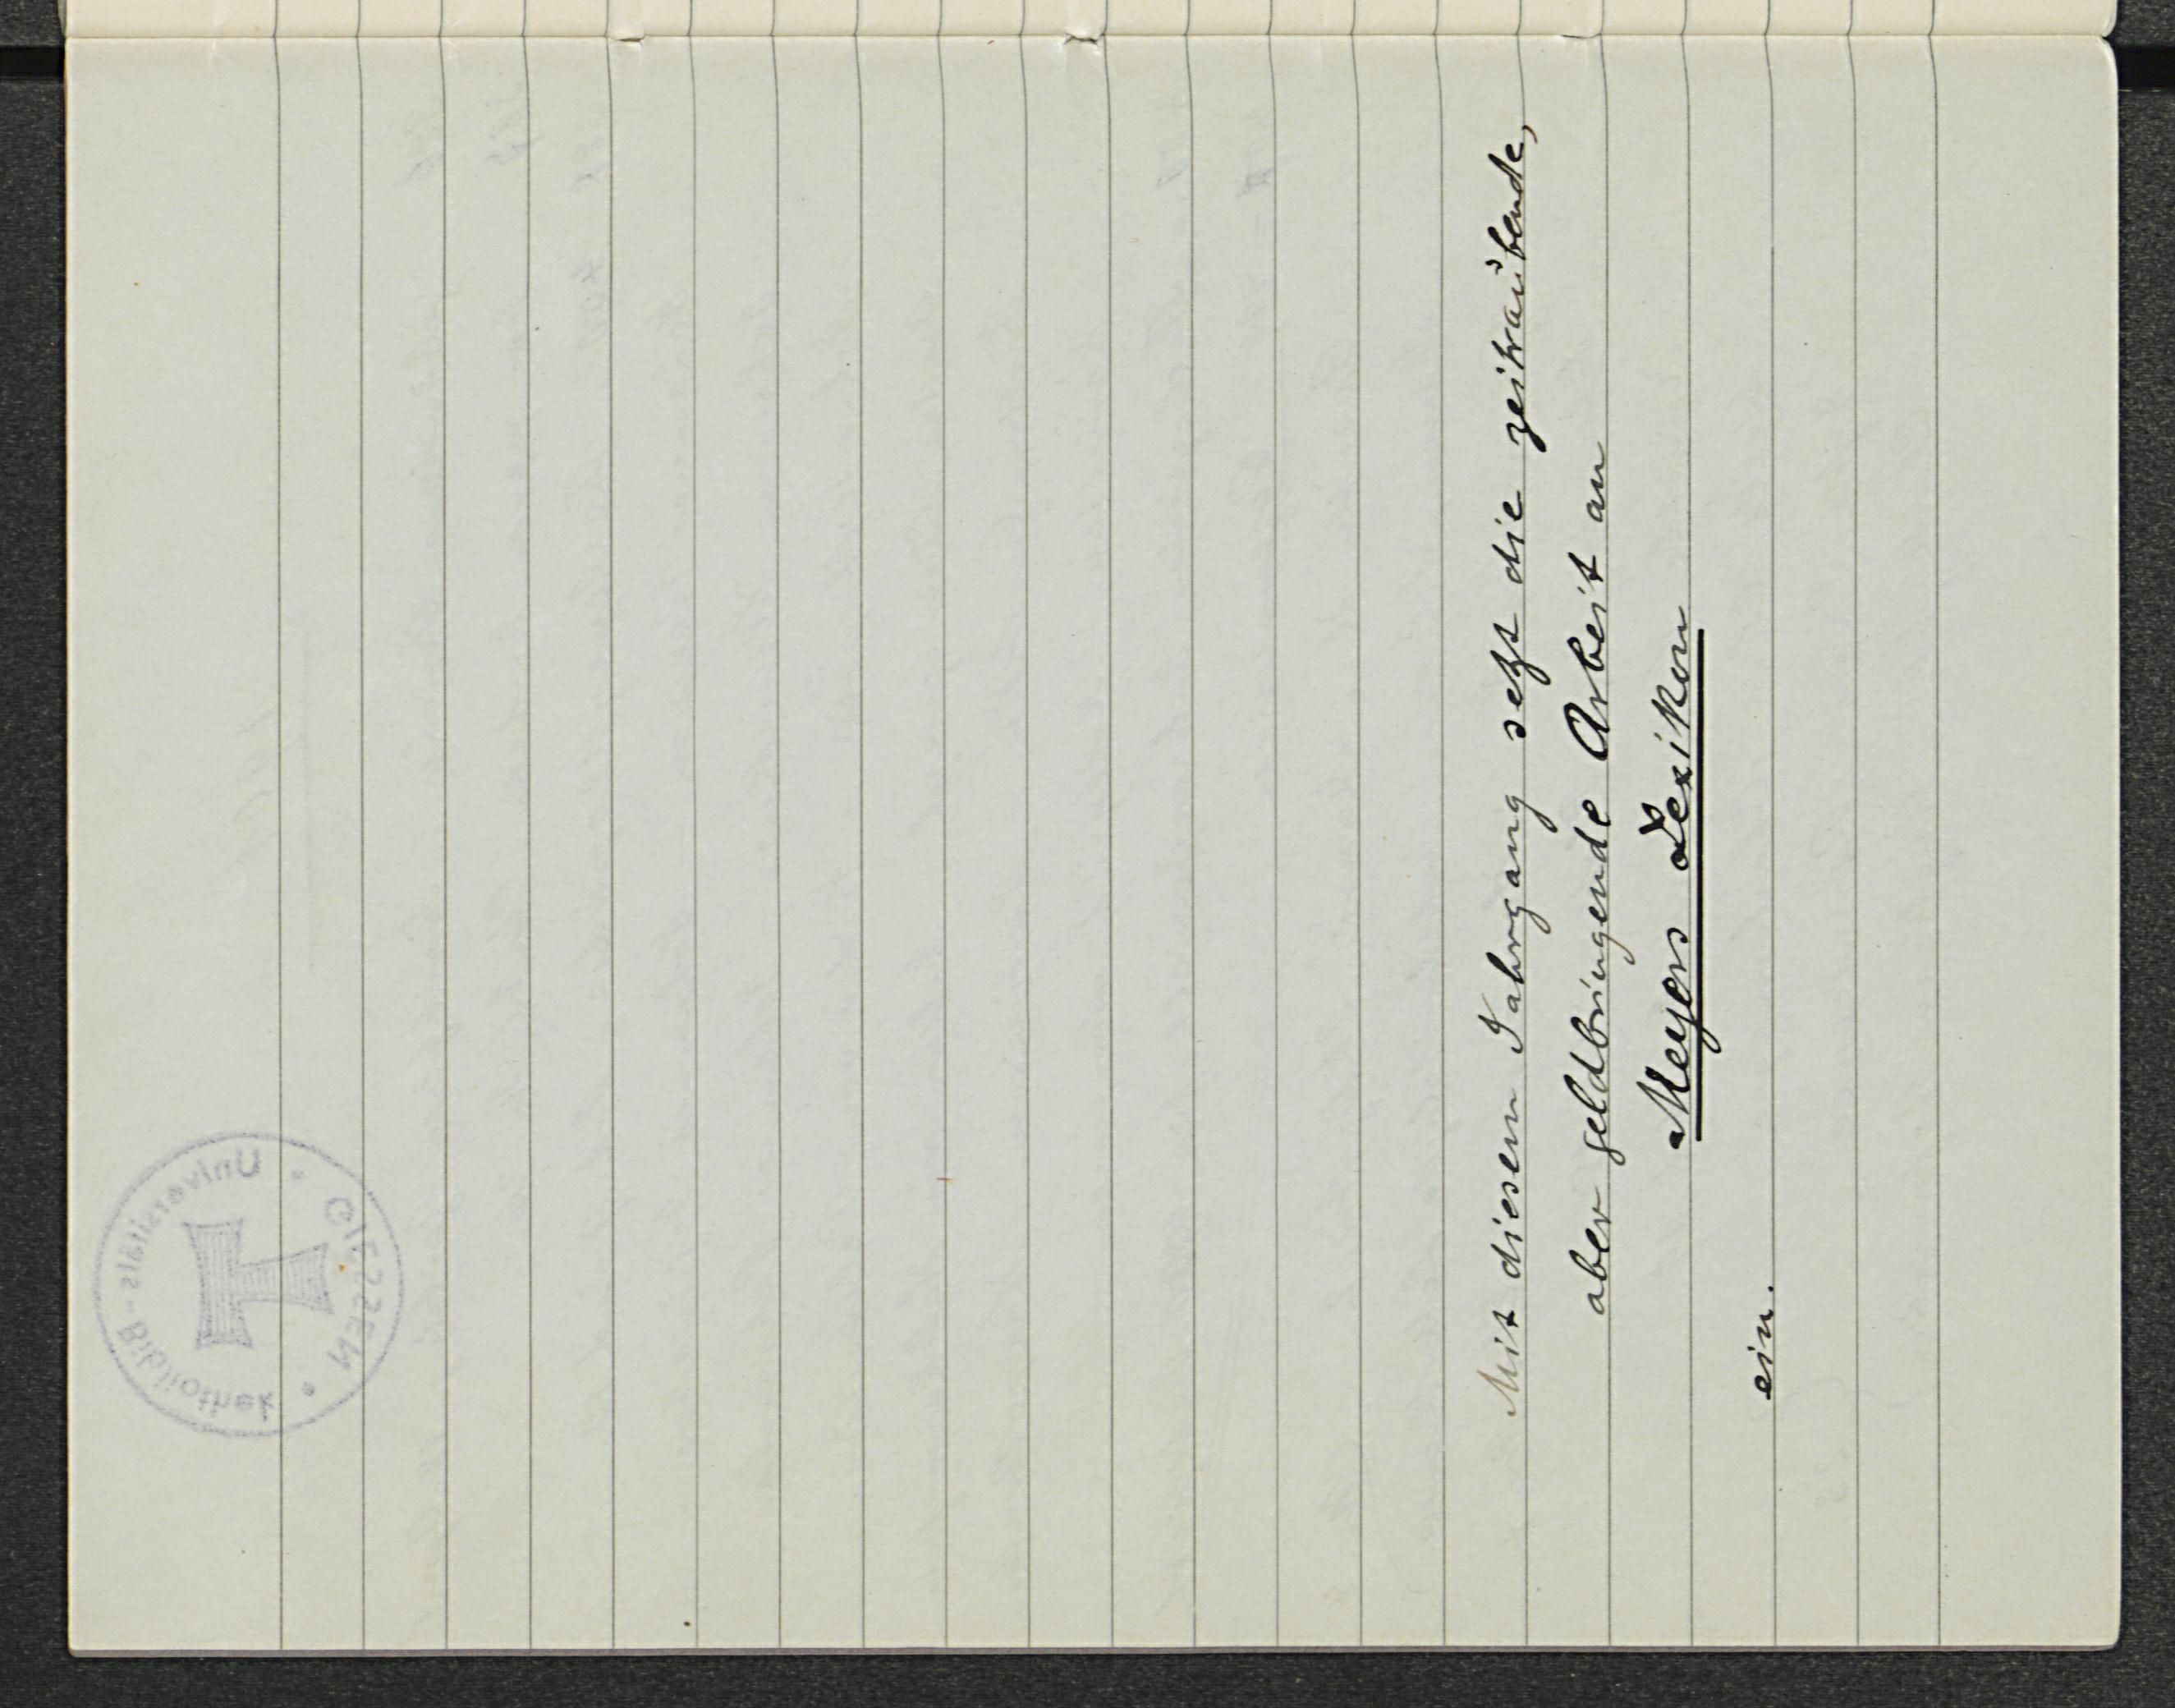 Mit diesem Jahrgang setzt die zeitraubende,
aber geldbringende Arbeit an
Meyers Lexikon
ein.
Universitäts-Bibliothek
GIESSEN